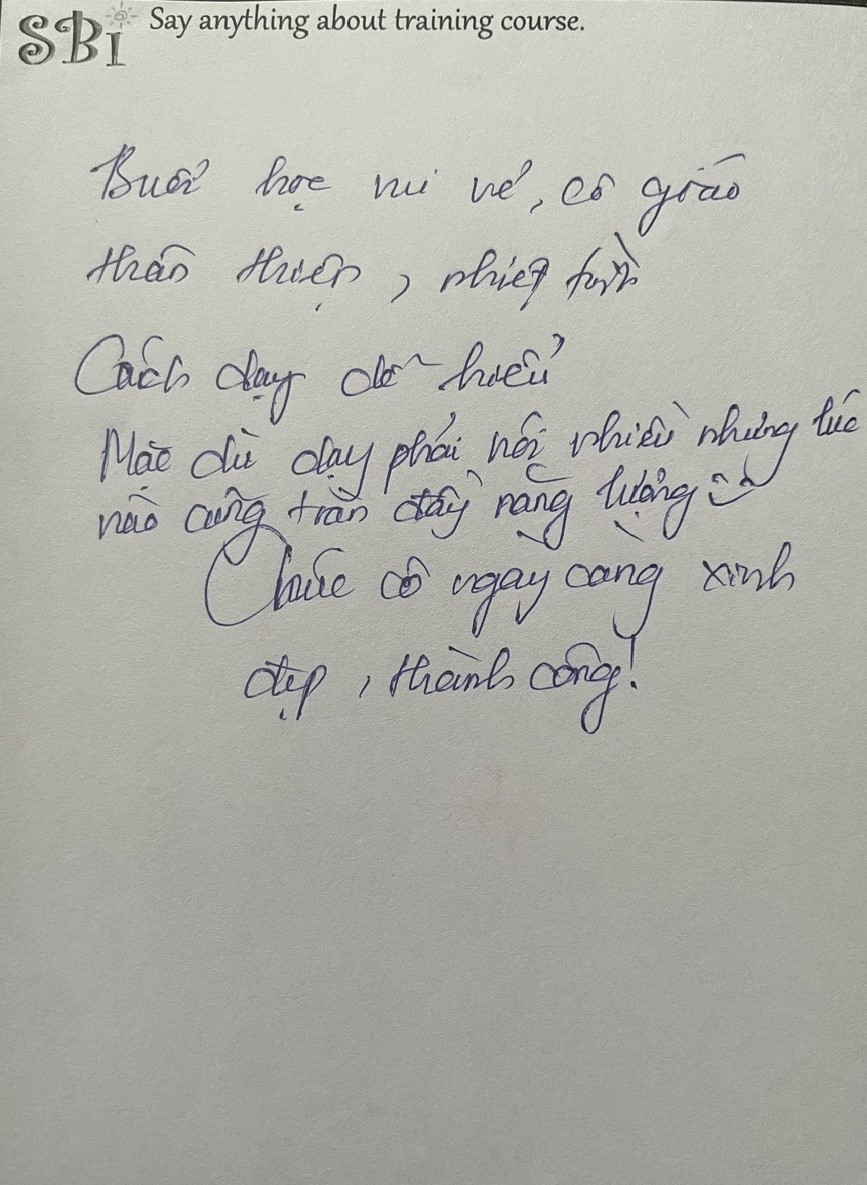 SBI Say anything about training course.
Buổi học vui vẻ, cô giáo
thân thiện, nhiệt tình
Cách dạy dễ hiểu
Mặc dù dạy phải nói nhiều nhưng lúc
nào cũng tràn đầy năng lượng
Chúc cô ngày càng xinh
đẹp, thành công!